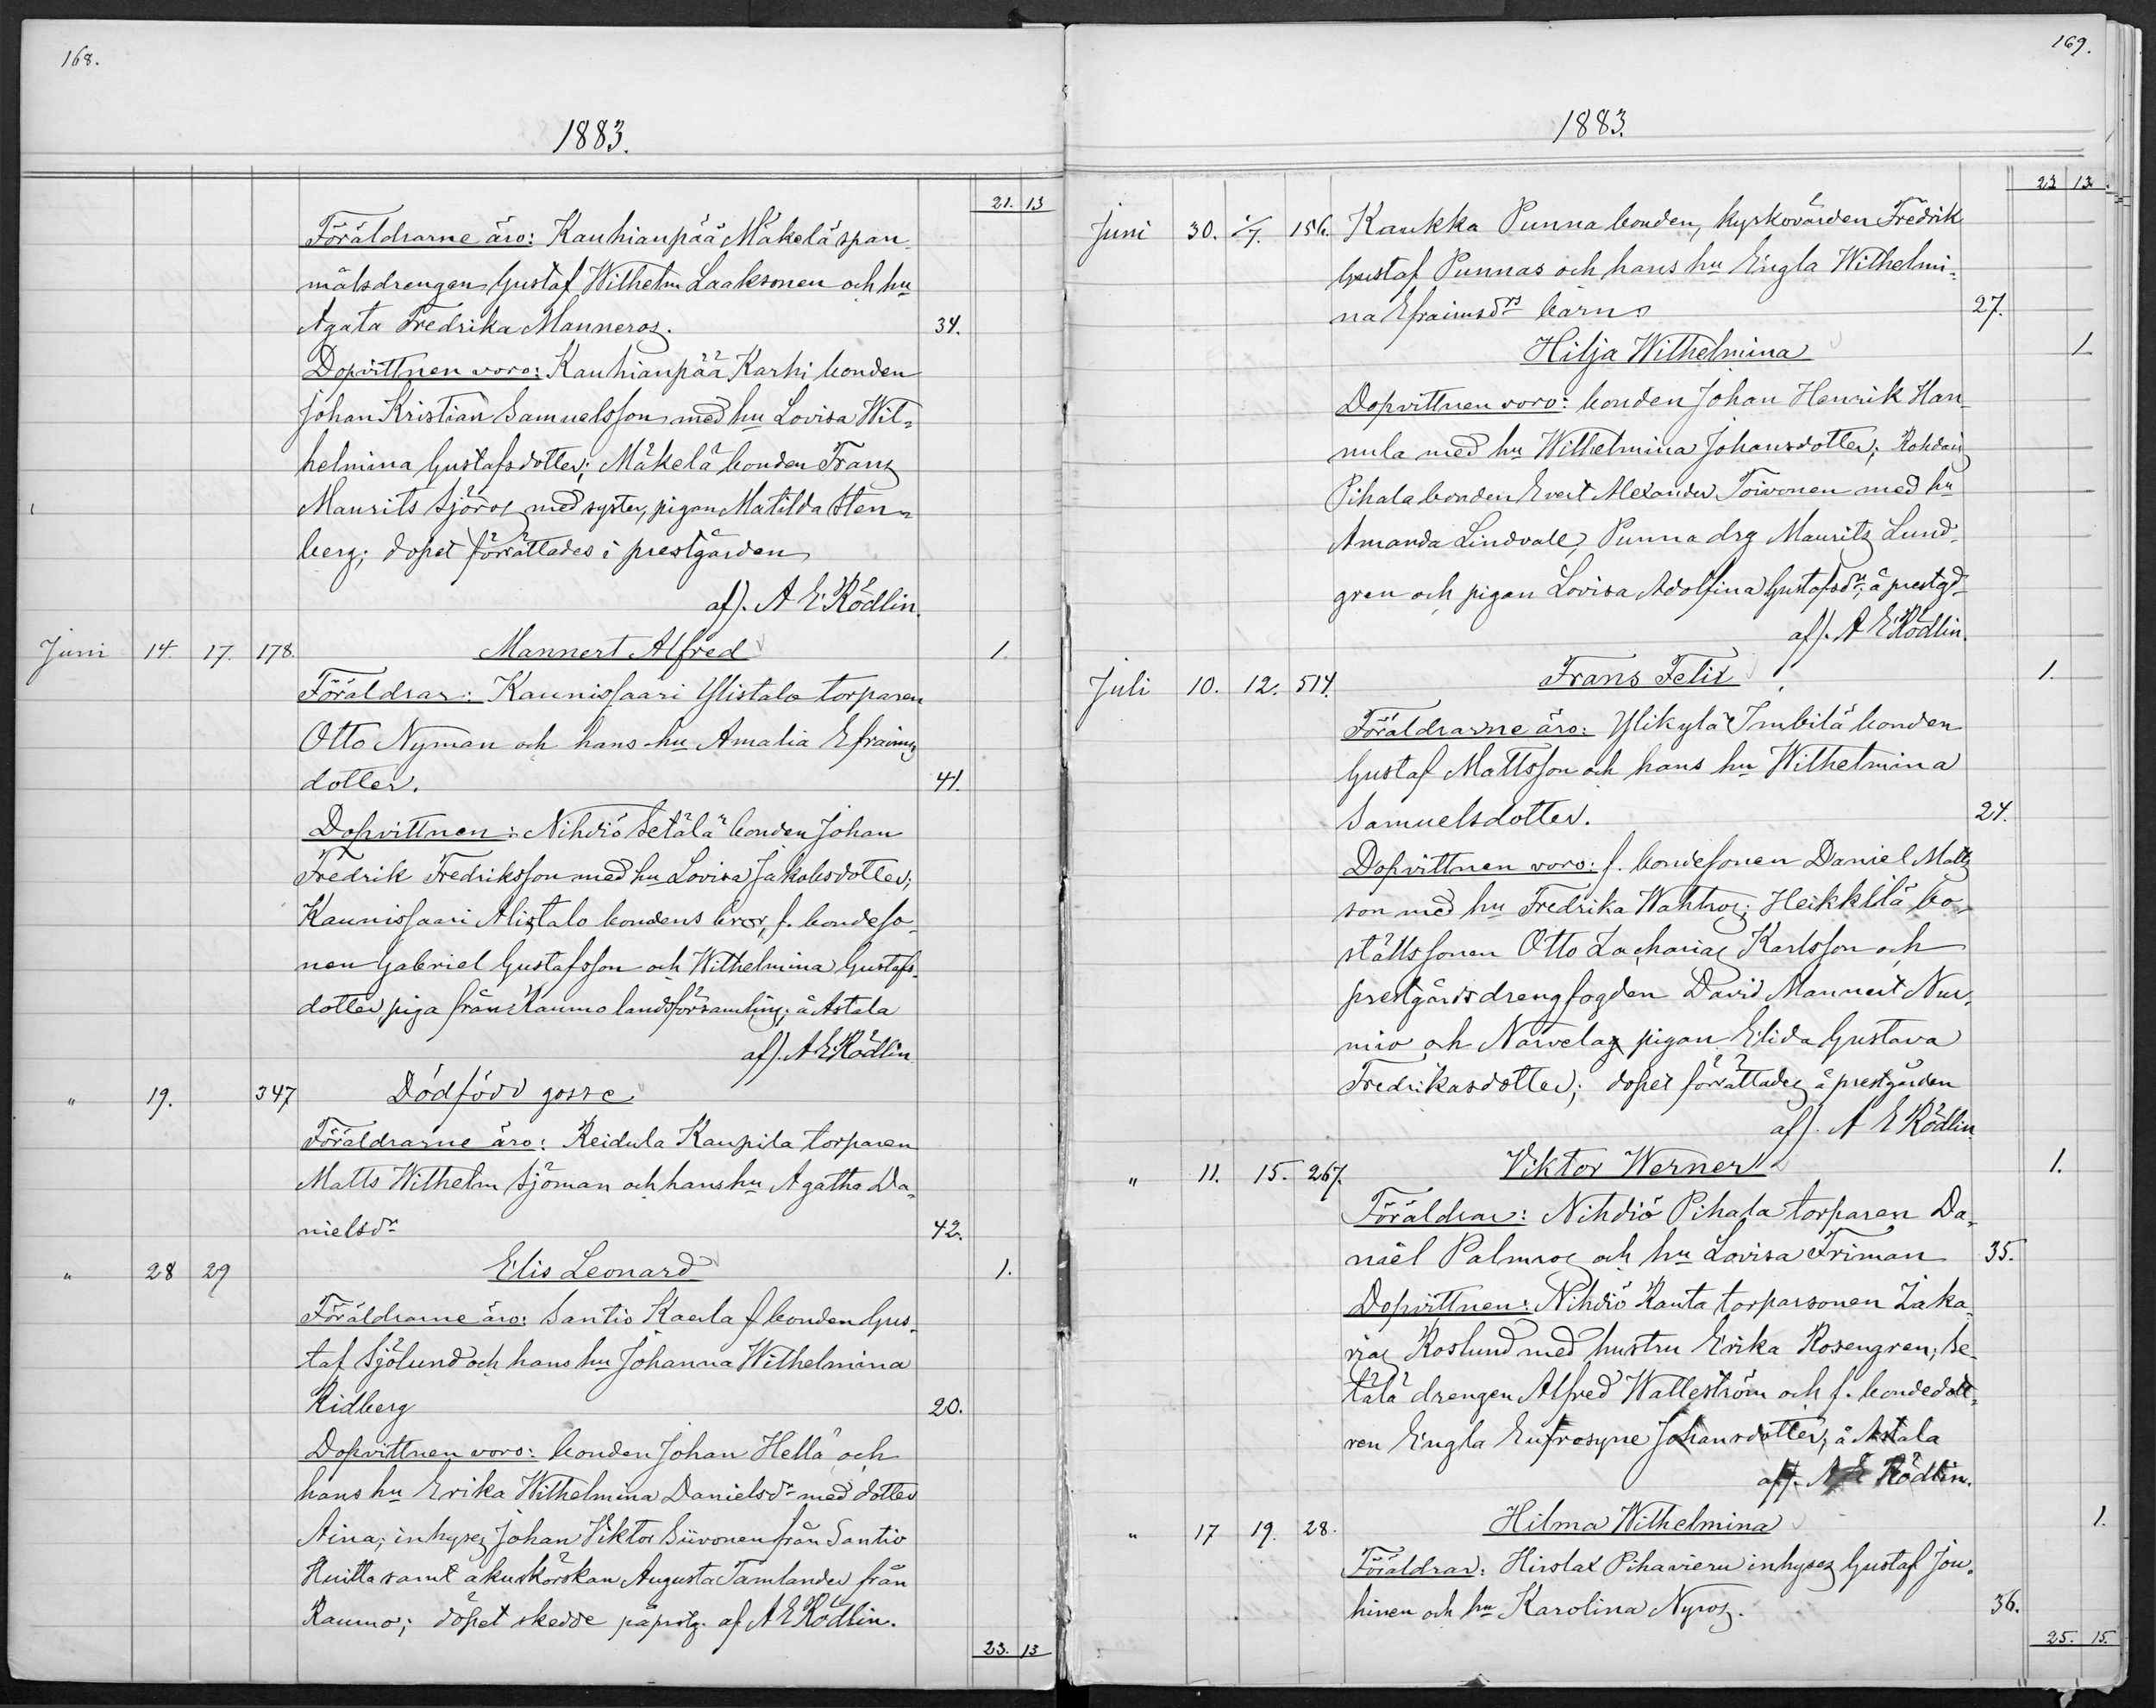 168.
1883.
21. 13
Föräldrarne äro: Kauhianpää Mäkelä span-
målsdrengen Gustaf Wilhelm Laaksonen och hu
Agata Fredrika Manneros. 34.
Dopvittnen voro: Kauhianpää Karhi bonden
Johan Kristian Samuelsson med hu Lovisa Wil-
helmina Gustafsdotter; Mäkelä bonden Frans
Maurits Sjöros med syster, pigan Matilda Sten-
berg; dopet förrättades i prestgården
af). A E Rödlin.
Juni 14. 17. 178. Mannert Alfred 1.
Föräldrar: Kaunissaari Ylistalo torparen
Otto Nyman och hans hu Amalia Efraims
dotter. 41.
Dopvittnen: Nihdiö Setälä bonden Johan
Fredrik Fredriksson med hu Lovisa Jakobsdotter;
Kaunissaari Alistalo bondens bror, f. bondeso-
nen Gabriel Gustafsson och Wilhelmina Gustafs-
dotter piga från Raumo landsförsamling; å Astala
af). A E Rödlin
" 19. 347 Dödfödd gosse
Föräldrarne äro: Reidula Kaupila torparen
Matts Wilhelm Sjöman och hans hu Agatha Da-
nielsdr 42.
" 28 29 Elis Leonard 1.
Föräldrarne äro: Santio Kaarla f bonden Gus-
taf Sjölund och hans hu Johanna Wilhelmina
Ridberg 20.
Dopvittnen voro: bonden Johan Hellä och
hans hu Erika Wilhelmina Danielsdr med dotter
Aina; inhyses Johan Viktor Siivonen från Santio
Huitta samt åkuskörskan Augusta Tamlander från
Raumo; döpet skedde på prstg. af A E Rödlin.
23. 13
169.
1883.
23 13.
Juni 30. 1/7. 156. Kaukka Punna bonden, kyrkovärden Fredrik
Gustaf Punnas och hans hu Engla Wilhelmi-
na Efraimsdrs barn 27.
Hilja Wilhelmina 1
Dopvittnen voro: bonden Johan Henrik Han-
nula med hu Wilhelmina Johansdotter; Rohdais
Pihala bonden Evert Alexander Toivonen med hu
Amanda Lindvall, Punna drg Maurits Lund-
gren och pigan Lovisa Adolfina Gustafsdr; å prestgd
af). A E Rödlin.
Juli 10. 12. 514. Frans Felix 1.
Föräldrarne äro: Ylikylä Imbilä bonden
Gustaf Mattsson och hans hu Wilhelmina
Samuelsdotter. 24.
Dopvittnen voro: f. bondesonen Daniel Matts
son med hu Fredrika Wahlros; Heikkilä bo-
ställssonen Otto Zacharias Karlsson och
prestgårdsdrengfogden David Mannert Nur-
mio och Narvelas pigan Elida Gustava
Fredrikasdotter; dopet förrättades å prestgården
af). A E Rödlin
" 11. 15. 267. Viktor Werner 1.
Föräldrar: Nihdiö Pihala torparen Da-
niel Palmros och hu Lovisa Friman 35.
Dopvittnen: Nihdiö Ranta torparsonen Zaka-
rias Roslund med hustru Erika Rosengren; Se-
tälä drengen Alfred Walleström och f. bondedott-
ren Engla Eufrosyne Johansdotter, å Astala
af). A E Rödlin.
" 17 19. 28. Hilma Wilhelmina 1.
Föräldrar: Hirslax Pihavieru inhyses Gustaf Jou-
hinen och hu Karolina Nyros. 36.
25. 15.